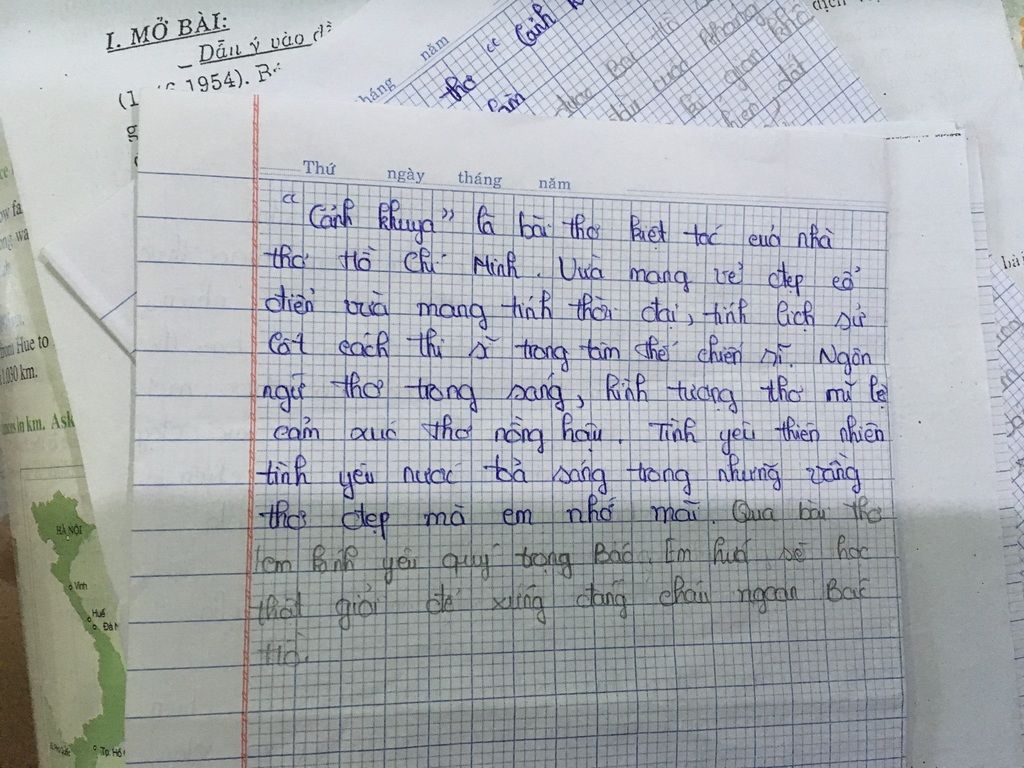 I. MỞ BÀI:
– Dẫn ý vào
1954).
năm
háng
thơ
" Cảnh
Thứ ngày tháng năm
" Cảnh khuya " là bài thơ kiệt tác cuả nhà
thơ Hồ Chí Minh. Vừa mang vẻ đẹp cổ
điển vừa mang tính thời đại, tính lịch sử
Cốt cách thi sĩ trong tâm thế chiến sĩ. Ngôn
ngữ thơ trong sáng, hình tượng thơ mĩ lệ
cảm xúc thơ nồng hậu. Tình yêu thiên nhiên
tình yêu nước toả sáng trong những vầng
thơ đẹp mà em nhớ mãi. Qua bài thơ
em kính yêu quý trọng Bác. Em hứa sẽ học
thật giỏi để xứng đáng cháu ngoan Bác
Hồ.
from Hue to
1.030 km.
in km. Ask
HÀ NỘI
Vinh
Huế
Tp. Hồ